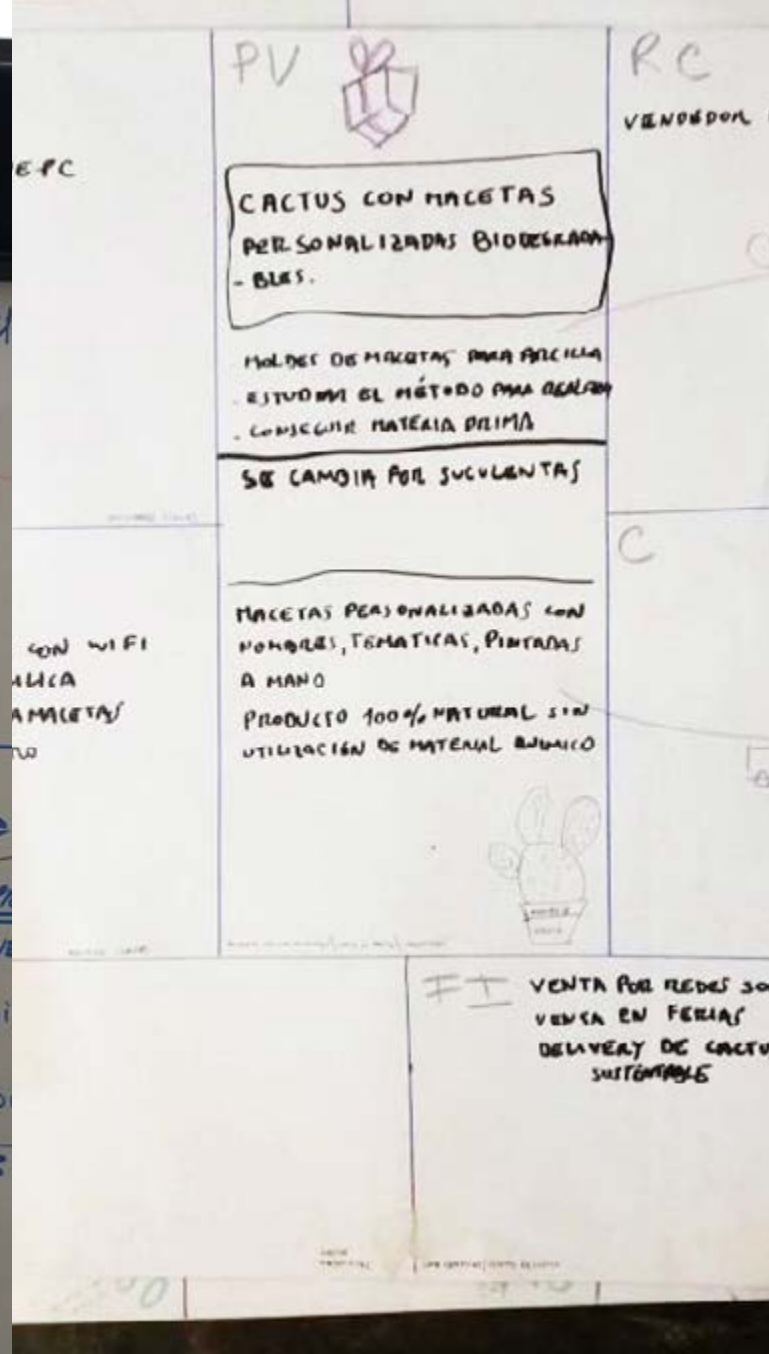 PV
RC
VENDEDOR
E PC
CACTUS CON MACETAS
PERSONALIZADAS BIODEGRADA
- BLES.
MOLDES DE MACETAS PARA ARCILLA
. ESTUDIAR EL MÉTODO PARA
. CONSEGUIR MATERIA PRIMA
SE CAMBIA POR SUCULENTAS
C
MACETAS PERSONALIZADAS CON
NOMBRES, TEMATICAS, PINTADAS
A MANO
PRODUCTO 100% NATURAL SIN
UTILIZACIÓN DE MATERIAL QUIMICO
CON WIFI
A MACETAS
FI
VENTA POR REDES SO
VENTA EN FERIAS
DELIVERY DE CACTU
SUSTENTABLE